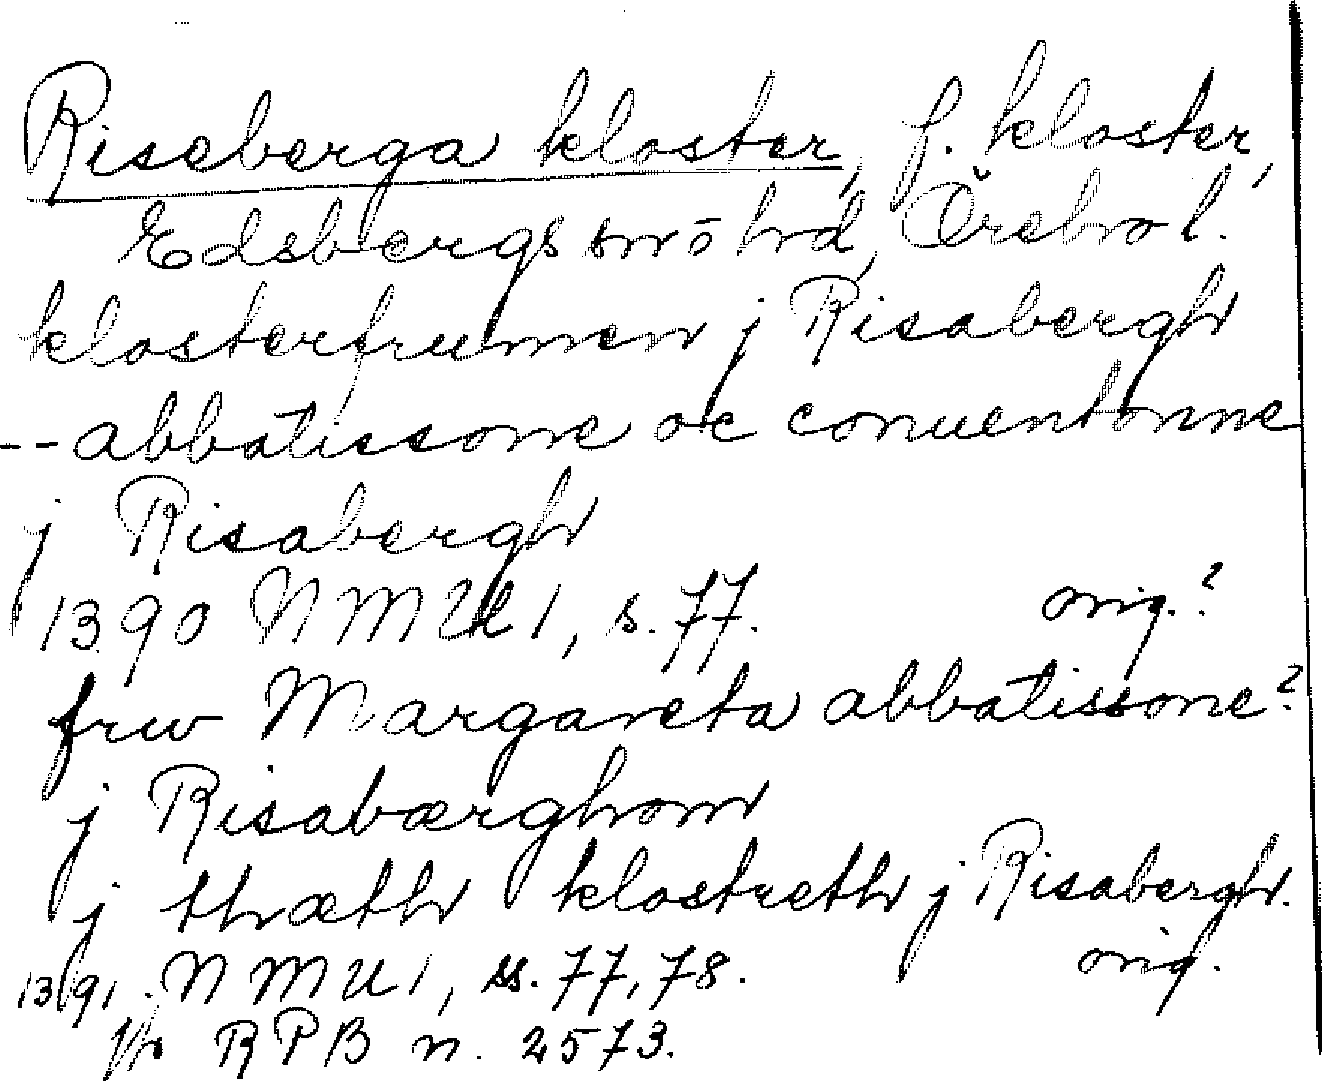 Riseberga kloster, f. kloster,
Edsbergs snö hd, Örebro l.
klosterfrumen j Risabergh
-- abbatissone oc conuentonne
j Risabergh
1390 NMU 1, s. 77. orig.?
frw Margareta abbatissone?
j Risabærghom
j thæth klostreth j Risabergh.
1391. NMU 1, ss. 77, 78. orig.
jfr RPB n. 2573.